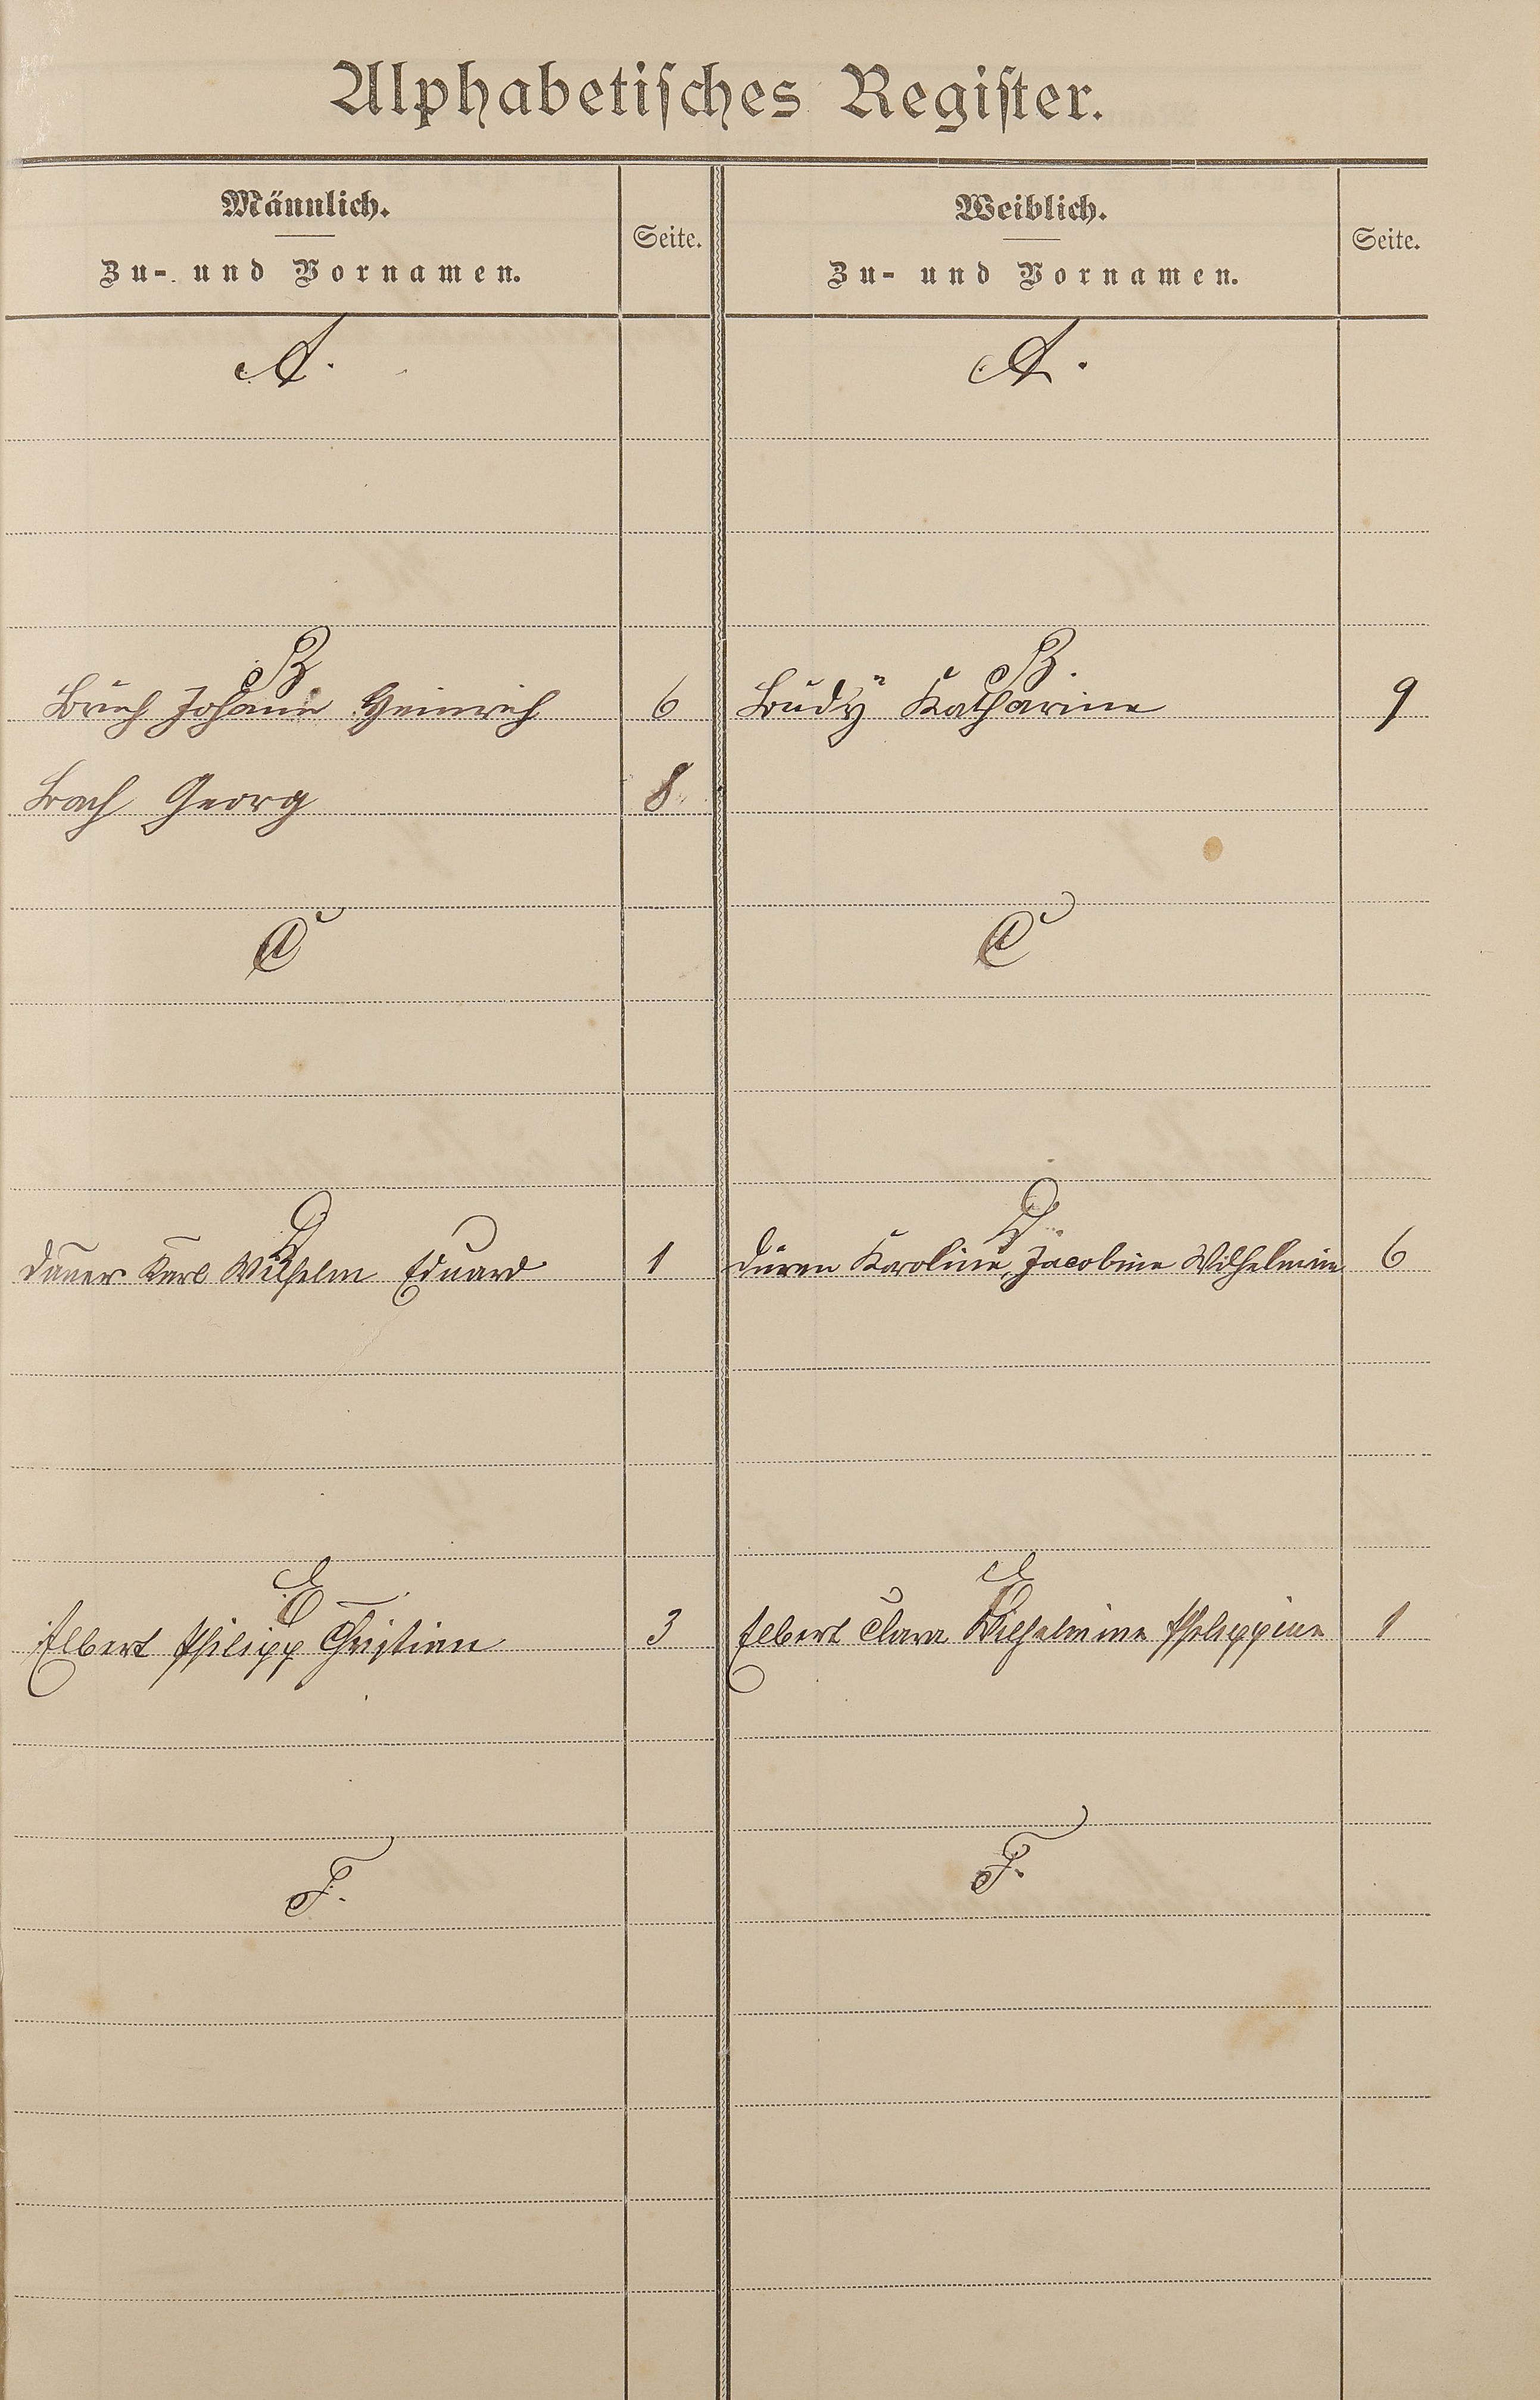 Alphabetisches Register.
Männlich.
Zu- und Vornamen.
Seite.
Weiblich.
Zu- und Vornamen.
Seite.
A.
A.
B
B.
Johann Heinrich 6
Budÿ Katharine 9
Bach Georg 8
C
C
D
D
Dauer Karl Wilhelm Eduard 1
Düren Karoline, Jacobine Wilhelmine 6
E
E
Elbert Philipp Christian 3
Elbert Clara Wilhelmine Philippine 1
F.
F.